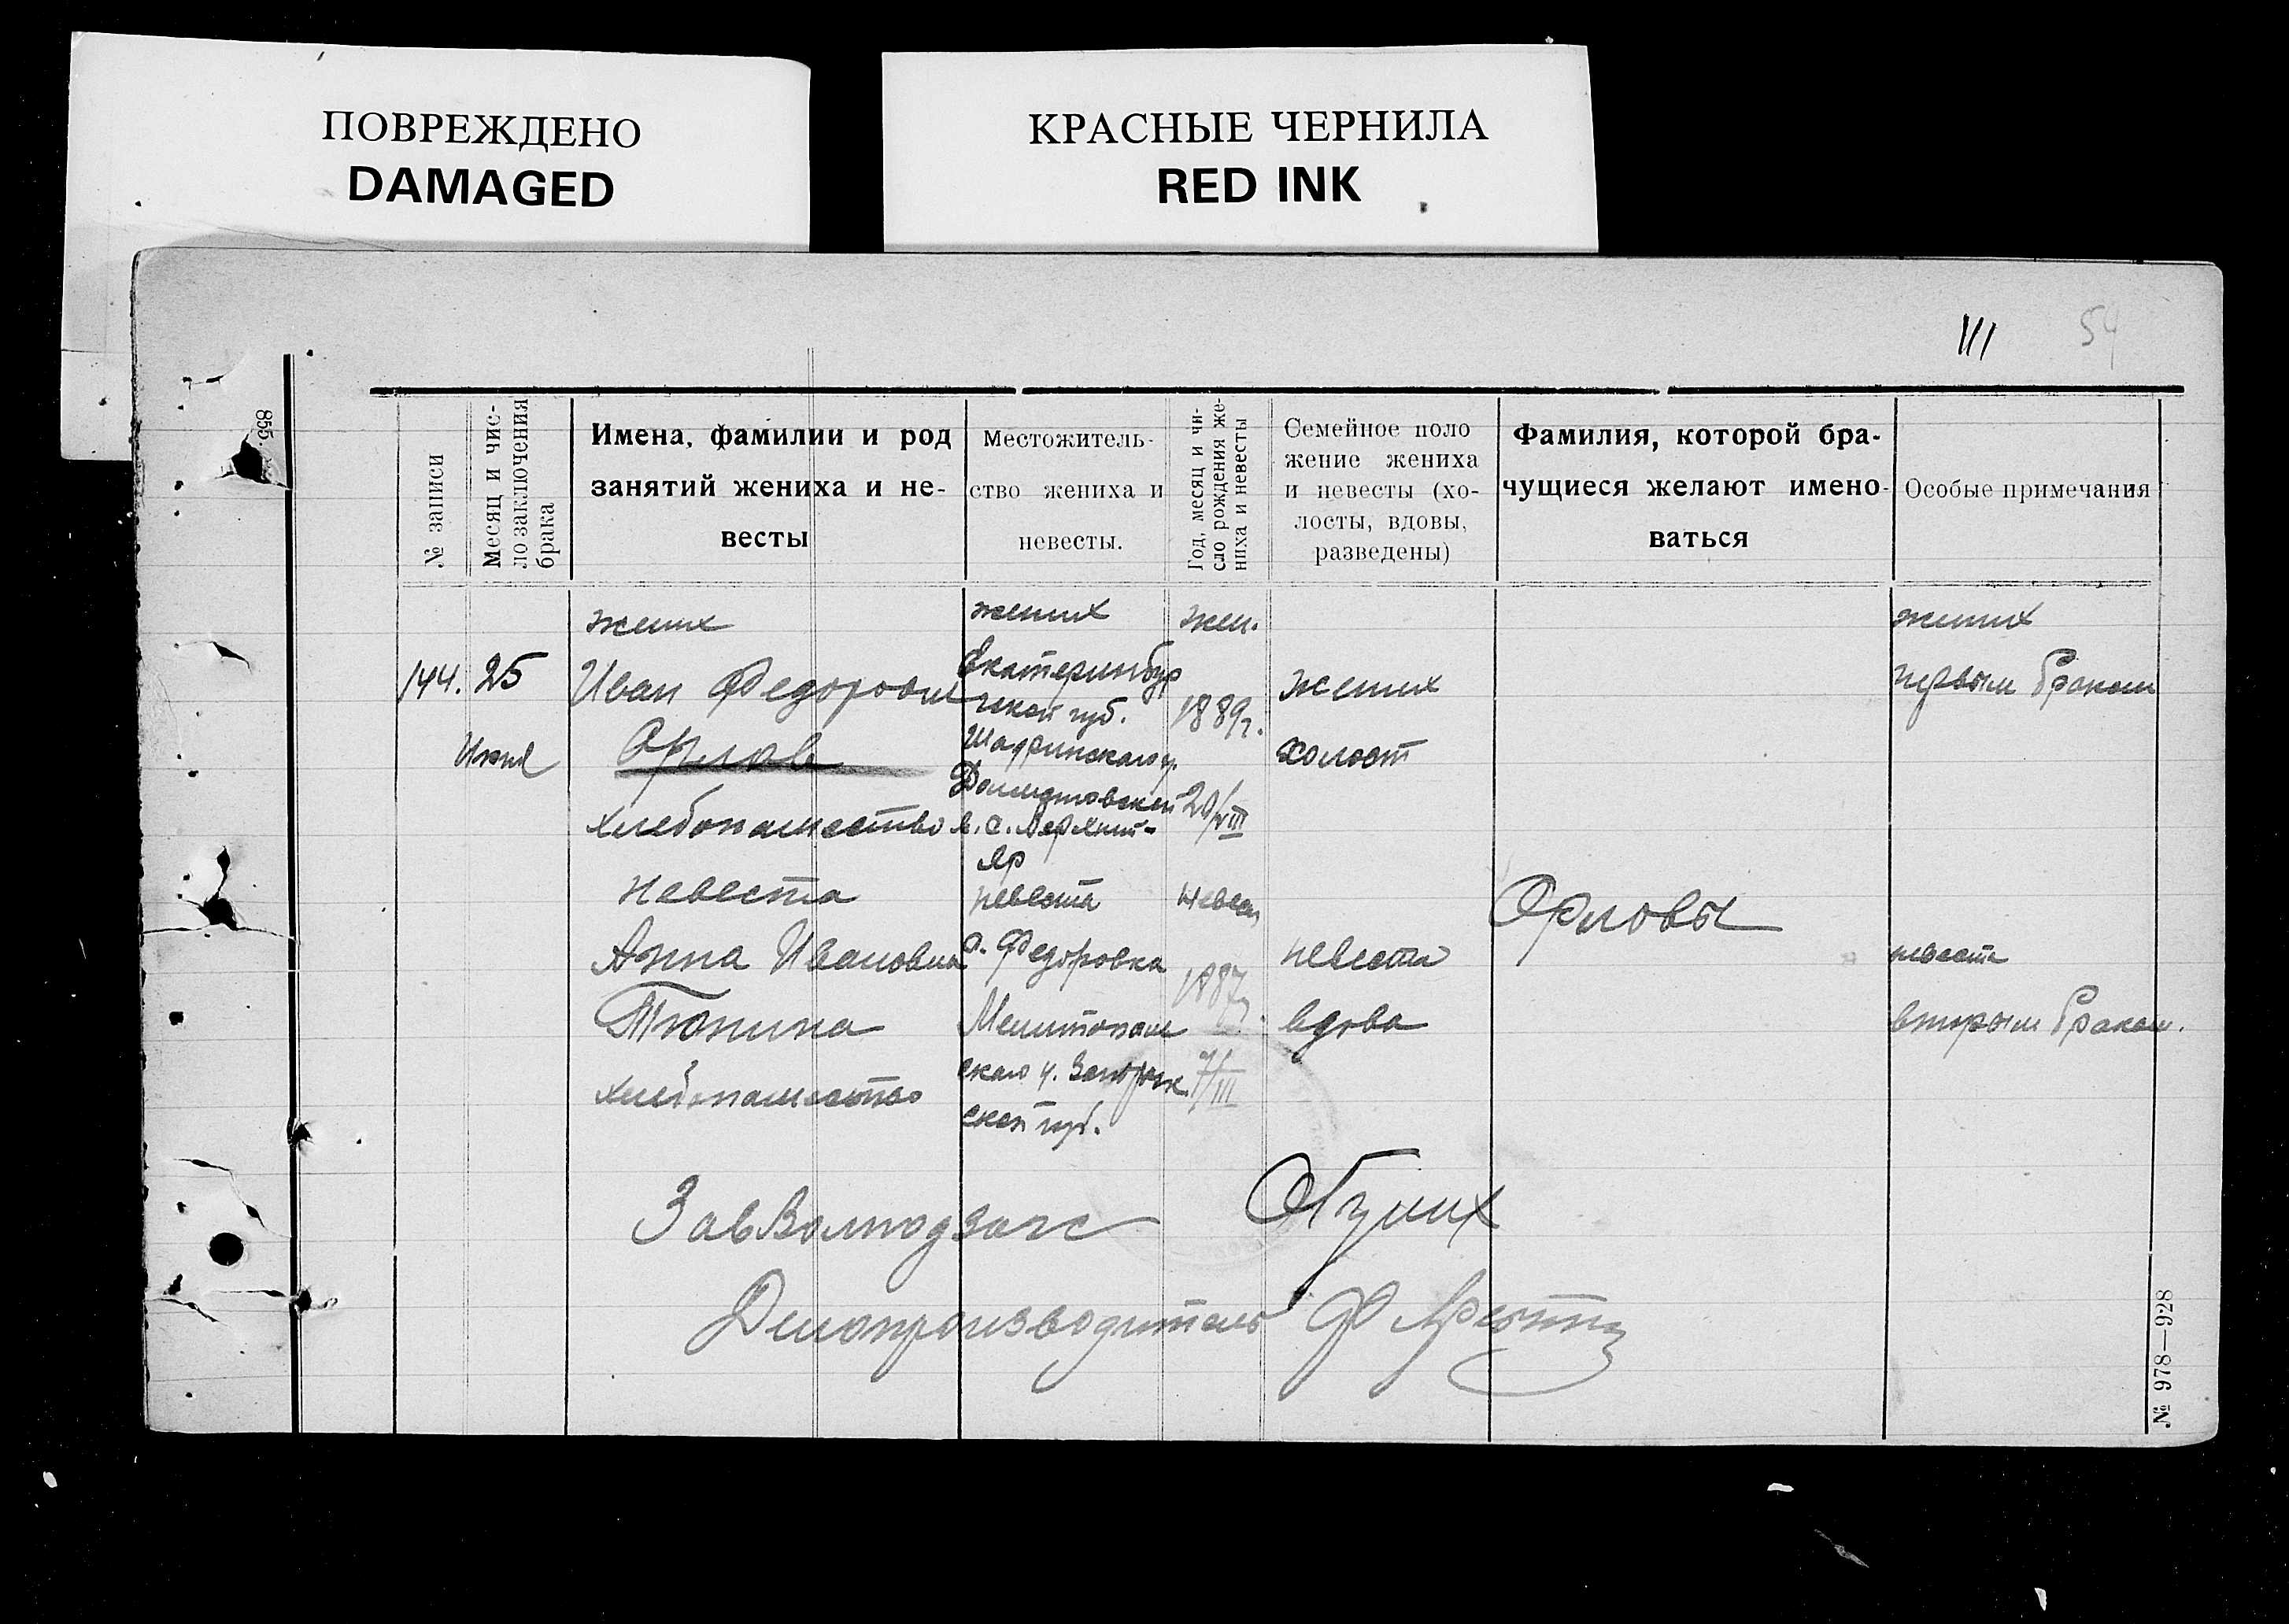 ПОВРЕЖДЕНО
DAMAGED
КРАСНЫЕ ЧЕРНИЛА
RED INK
111
54
855.
№ записи
Месяц и чис-
ло заключения
брака
Имена, фамилии и род
занятий жениха и не-
весты
Местожитель-
ство жениха и
невесты.
Год, месяц и чи-
сло рождения же-
ниха и невесты
Семейное поло
жение жениха
и невесты (хо-
лосты, вдовы,
разведены)
Фамилия, которой бра-
чущиеся желают имено-
ваться
Особые примечания
144.
25
Июня
жених
Иван Федорович
Орлов
хлебопашество
невеста
Анна Ивановна
Тюпина
хлебопашество
жених
Екатеринбур
гской губ.
Шадринского у.
в. с. Верхний-
Яр
невеста
с. Федоровка
Мелитополь
ского у. Запорож
ской губ.
жен.
1889г.
20/VIII
невес
1887г.
7/III
жених
холост
невеста
вдова
Орловы
жених
первым браком
невеста
вторым браком.
ЗавВолподзагс
Делопроизводитель
№ 978—928